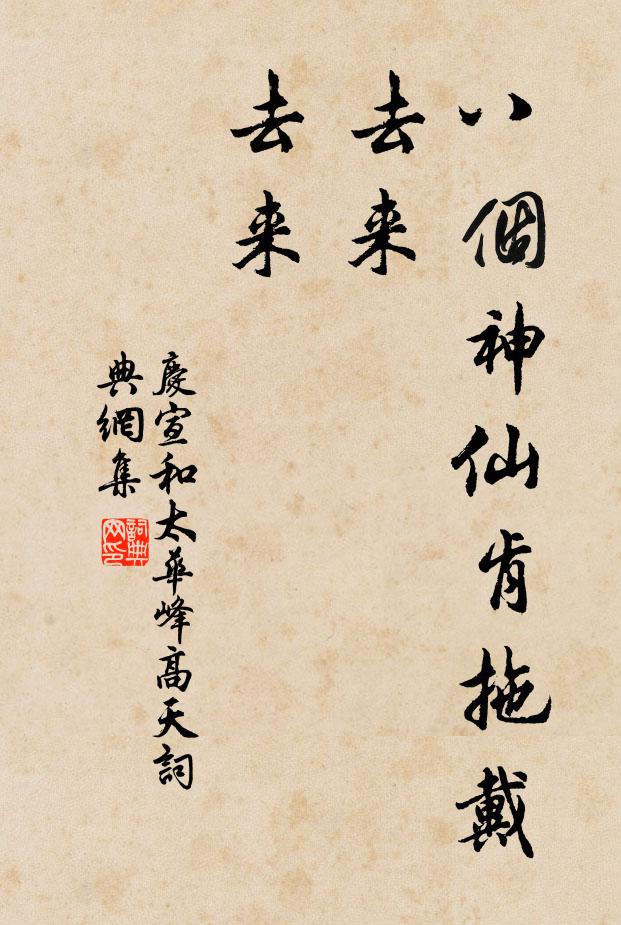 八個神仙肯拖戴
去来
去来
慶宣和太華峰高天詞
典網集
詞典网印